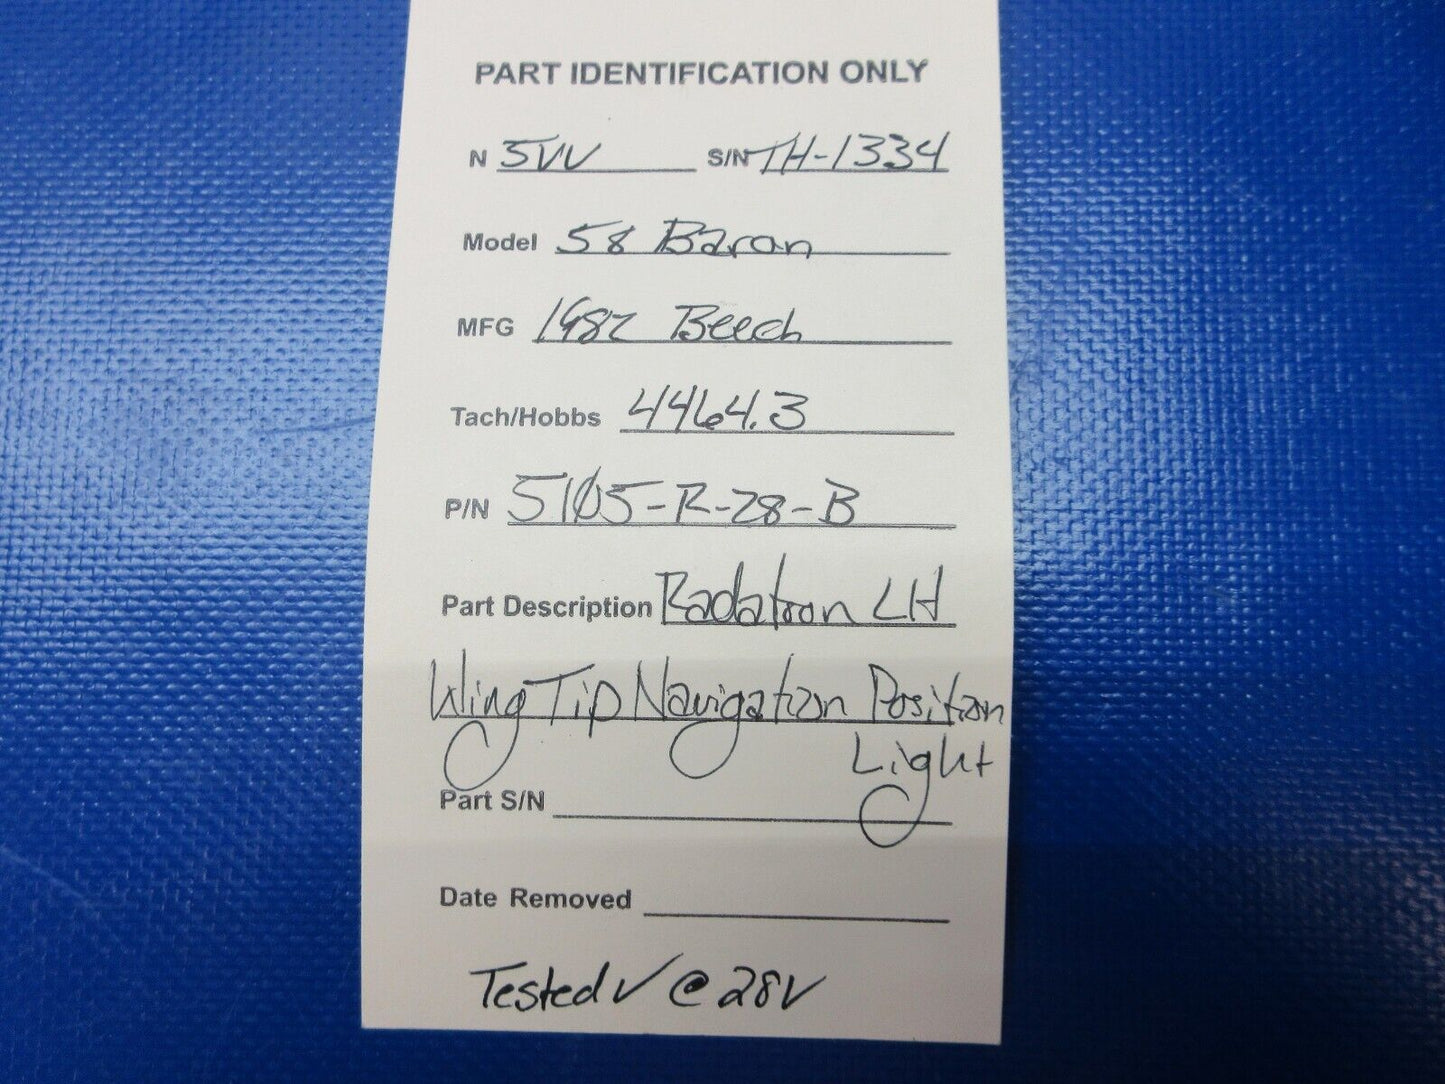 PART IDENTIFICATION ONLY
N 5VV S/N TH-1334
Model 58 Baron
MFG 1982 Beech
Tach/Hobbs 4464.3
P/N 5105-R-28-B
Part Description Radatron LH
Wing Tip Navigation Position
Light
Part S/N
Date Removed
Tested ✓ @ 28V